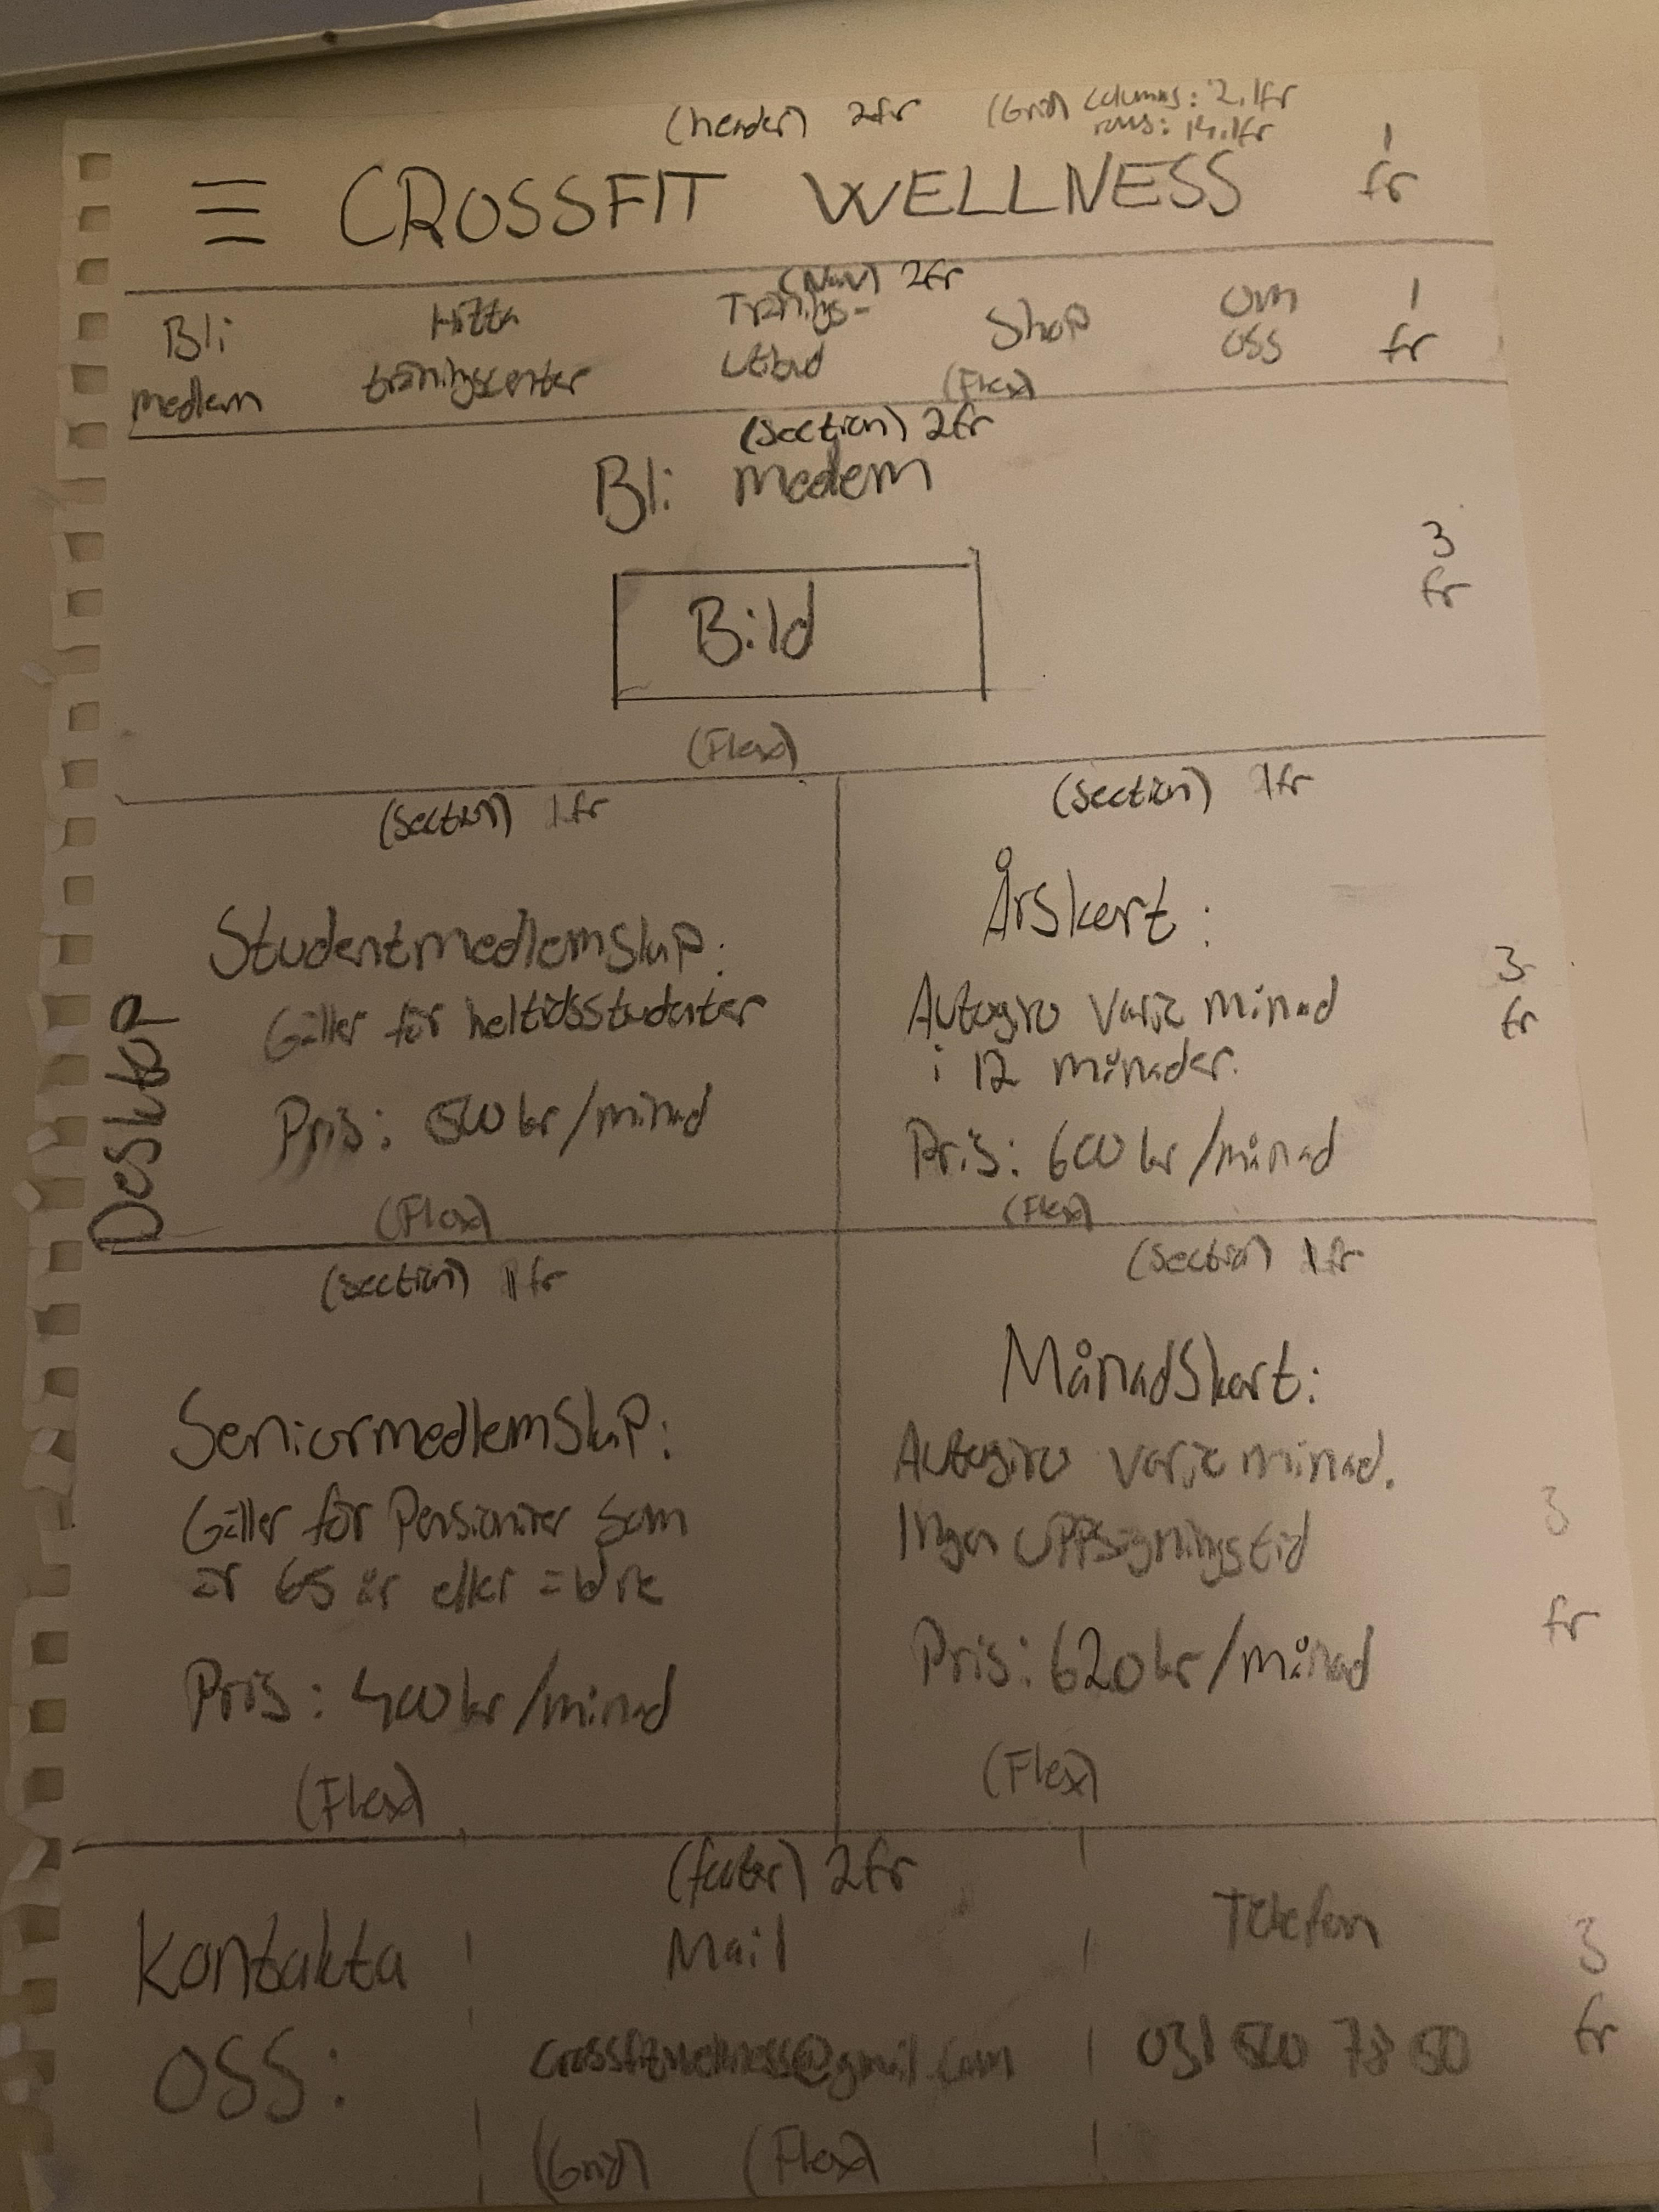 (header) 2fr (Grid) columns: 2.1fr
rows: 14.1fr
CROSSFIT WELLNESS
1
fr
(Nav) 2fr
Bli
medlem
Hitta
träningscenter
Tränings-
utbud
Shop
(Flex)
Om
oss
1
fr
(section) 2fr
Bli medlem
Bild
(Flex)
3
fr
Desktop
(section) 1fr
Studentmedlemskap:
Gäller för heltidsstudenter
Pris: 500 kr/månad
(Flex)
(section) 1fr
Årskort:
Autogiro varje månad
i 12 månader.
Pris: 600 kr/månad
(Flex)
3
fr
(section) 1fr
Seniormedlemskap:
Gäller för Pensionärer som
är 65 år eller äldre
Pris: 400 kr/månad
(Flex)
(section) 1fr
Månadskort:
Autogiro varje månad.
Ingen uppsägningstid
Pris: 620 kr/månad
(Flex)
3
fr
(footer) 2fr
Kontakta
oss:
Mail
crossfitwellness@gmail.com
(Grid) (Flex)
Telefon
031 500 78 50
3
fr